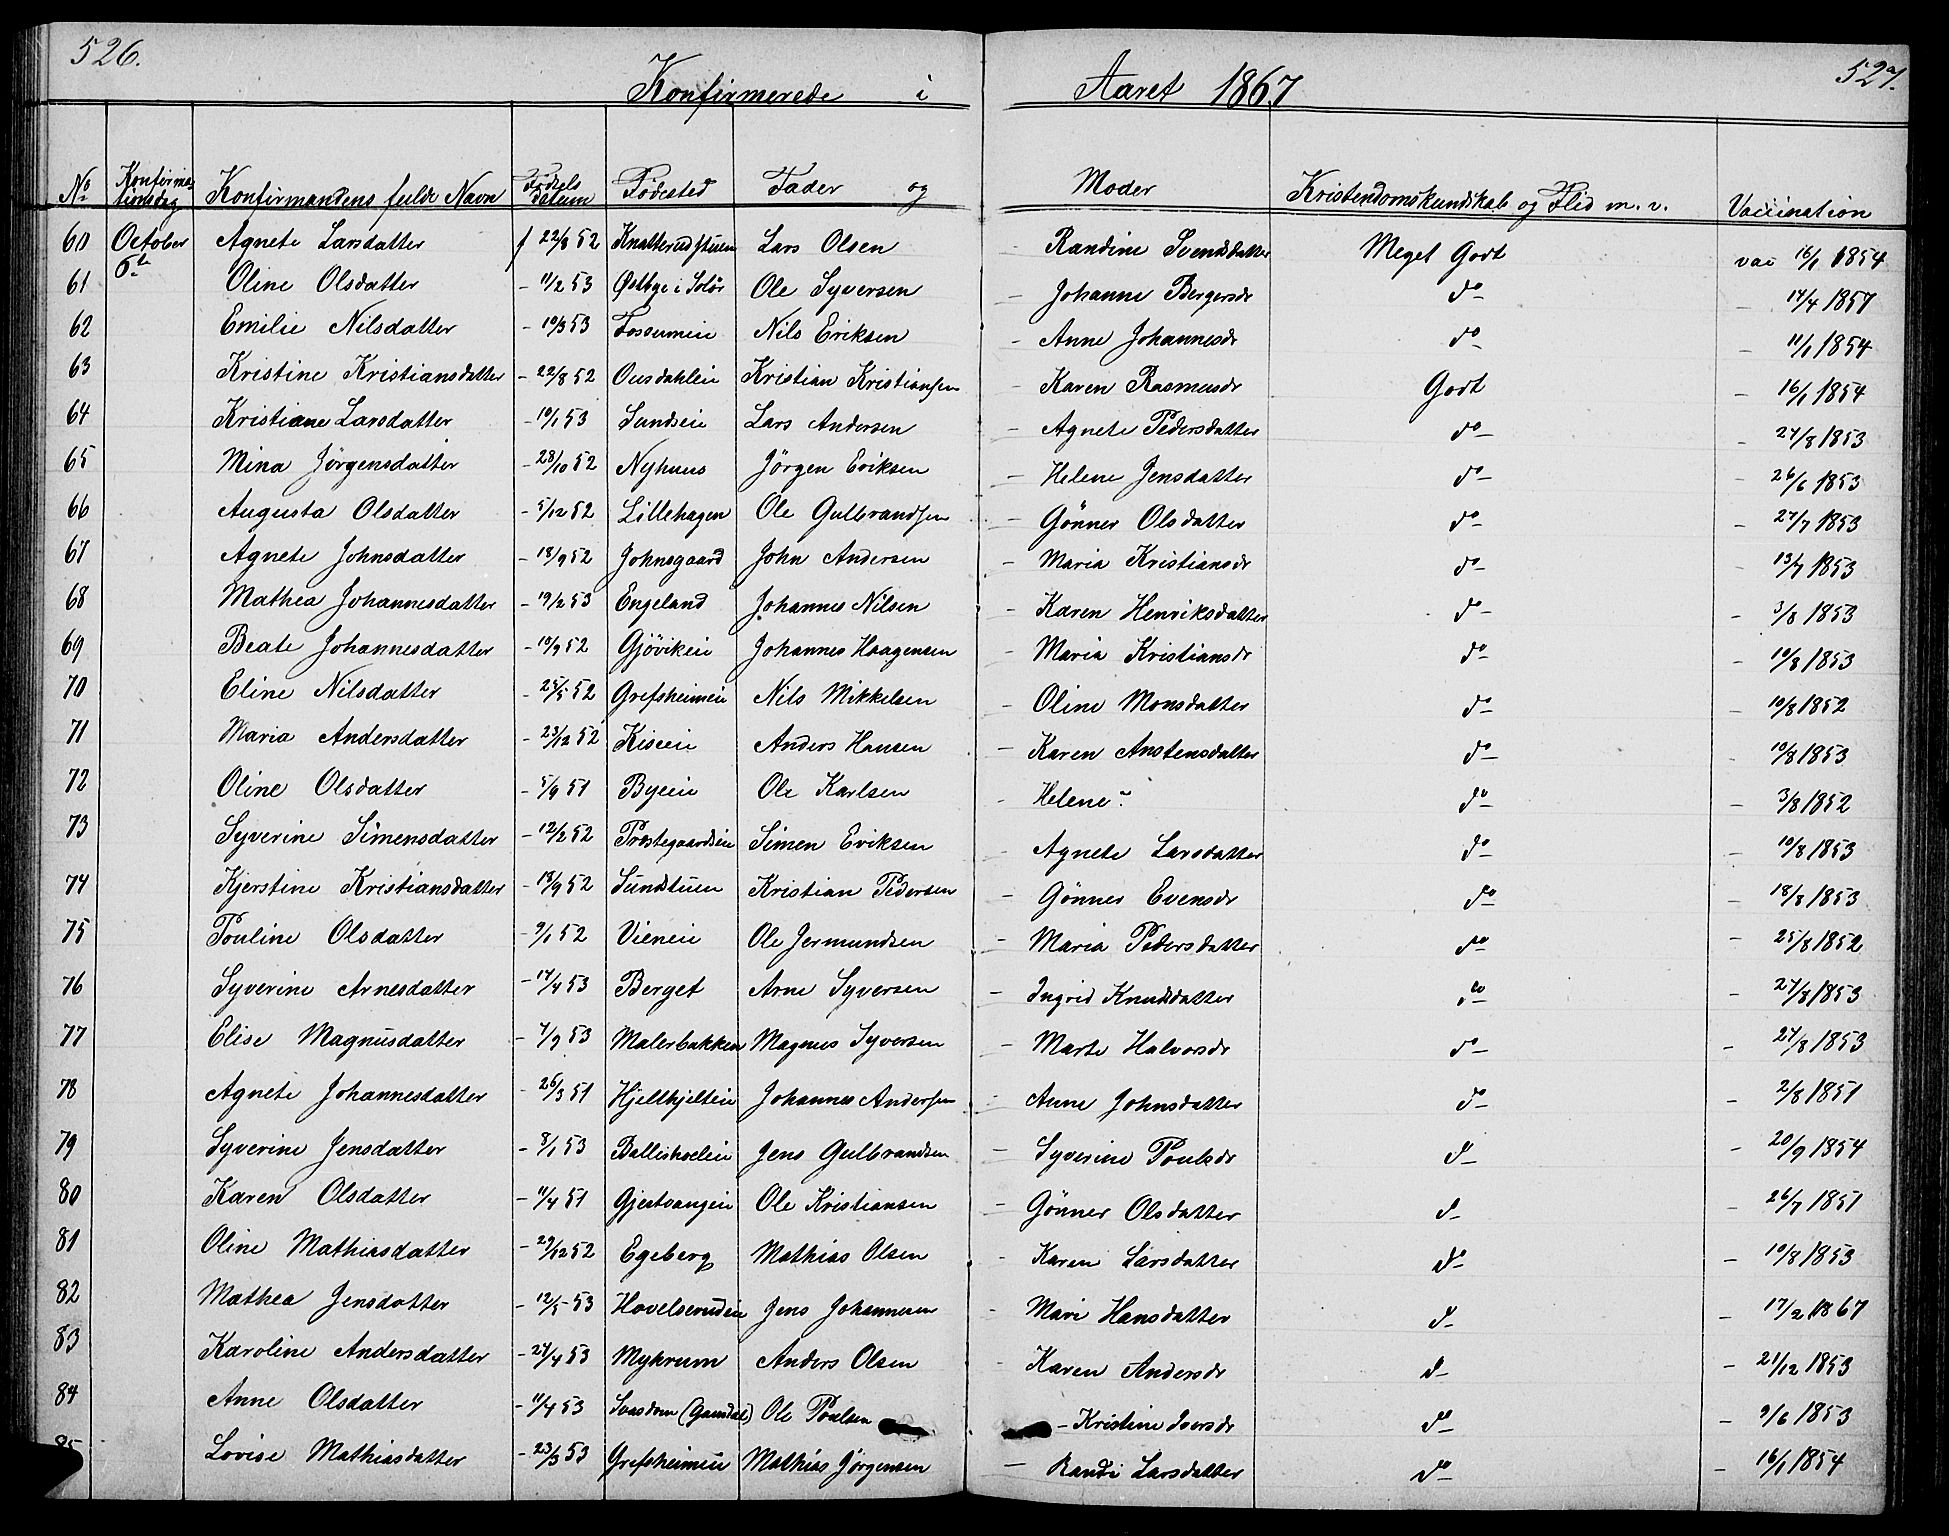 526.
527.
Konfirmerede i Aaret 1867
No Konfirma- tionsdag Konfirmandens fulde Navn Fødsels datum Fødested Fader og Moder Kristendomskundskab og Flid m. v. Vaccination
60 October 6te Agnete Larsdatter f 22/8 52 Knatterudstuen Lars Olsen — Randine Svendsdatter Meget Godt vac 16/1 1854
61 Oline Olsdatter - 11/2 53 Østbye i Solør Ole Syversen — Johanne Bergersdr do — 14/4 1857
62 Emilie Nilsdatter - 10/3 53 Fossumeie Nils Eriksen - Anne Johannesdr do — 11/1 1854
63 Kristine Kristiansdatter - 22/8 52 Ousdahleie Kristian Kristiansen - Karen Rasmusdr Godt — 16/1 1854
64 Kristiane Larsdatter - 10/1 53 Sundseie Lars Andersen - Agnete Pedersdatter do — 27/8 1853
65 Mina Jørgensdatter - 28/10 52 Nyhuus Jørgen Eriksen — Helene Jensdatter do - 26/6 1853
66 Augusta Olsdatter - 5/12 52 Lillehagen Ole Gulbrandsen - Gønner Olsdatter do - 27/7 1853
67 Agnete Johnsdatter - 18/9 52 Johnsgaard John Andersen - Maria Kristiansdr do - 13/7 1853
68 Mathea Johannesdatter - 19/2 53 Engeland Johannes Nilsen - Karen Henriksdatter do - 3/8 1853
69 Beate Johannesdatter - 10/9 52 Gjøvikeie Johannes Haagensen — Maria Kristiansdr do - 10/8 1853
70 Eline Nilsdatter - 25/5 52 Grefsheimeie Nils Mikkelsen - Oline Monsdatter do - 10/8 1852
71 Maria Andersdatter - 23/12 52 Kiseeie Anders Hansen — Karen Anstensdatter do - 10/8 1853
72 Oline Olsdatter - 5/9 51 Byeeie Ole Karlsen - Helene? do — 3/8 1852
73 Syverine Simensdatter - 12/2 52 Præstegaardseie Simen Eriksen — Agnete Larsdatter do - 10/8 1853
74 Kjerstine Kristiansdatter - 13/9 52 Sundstuen Kristian Pedersen - Gønner Evensdr do - 18/8 1853
75 Pouline Olsdatter - 9/1 52 Vieneie Ole Jermundsen — Maria Pedersdatter do - 25/8 1852
76 Syverine Arnesdatter - 14/4 53 Berget Arne Syversen — Ingrid Knudsdatter do - 27/8 1853
77 Elise Magnusdatter - 7/9 53 Malerbakken Magnus Syversen — Marte Halvorsdr do - 27/8 1853
78 Agnete Johannesdatter - 26/3 51 Hjelthjelteie Johannes Andersen - Anne Johnsdatter do - 2/8 1851
79 Syverine Jensdatter - 8/1 53 Ballishoeleie Jens Gulbrandsen — Syverine Poulsdr d - 20/9 1854
80 Karen Olsdatter - 11/4 51 Gjestvangeie Ole Kristiansen - Gønner Olsdatter d - 26/7 1851
81 Oline Mathiasdatter - 29/12 52 Egeberg Mathias Olsen — Karen Larsdatter do - 10/8 1853
82 Mathea Jensdatter - 12/5 53 Hovelserudeie Jens Johannesen - Mari Hansdatter d - 17/2 1867
83 Karoline Andersdatter - 27/4 53 Mykrum Anders Olsen - Karen Andersdr d - 21/12 1853
84 Anne Olsdatter - 11/4 53 Svasdom (Gamdal) Ole Poulsen - Kristine Iversdr do - 9/6 1853
85 Lovise Mathiasdatter - 23/3 53 Grefsheimeie Mathias Jørgensen — Randi Larsdatter do - 16/1 1854